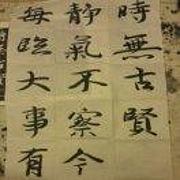 每臨大事有
靜氣不察今
時無古賢